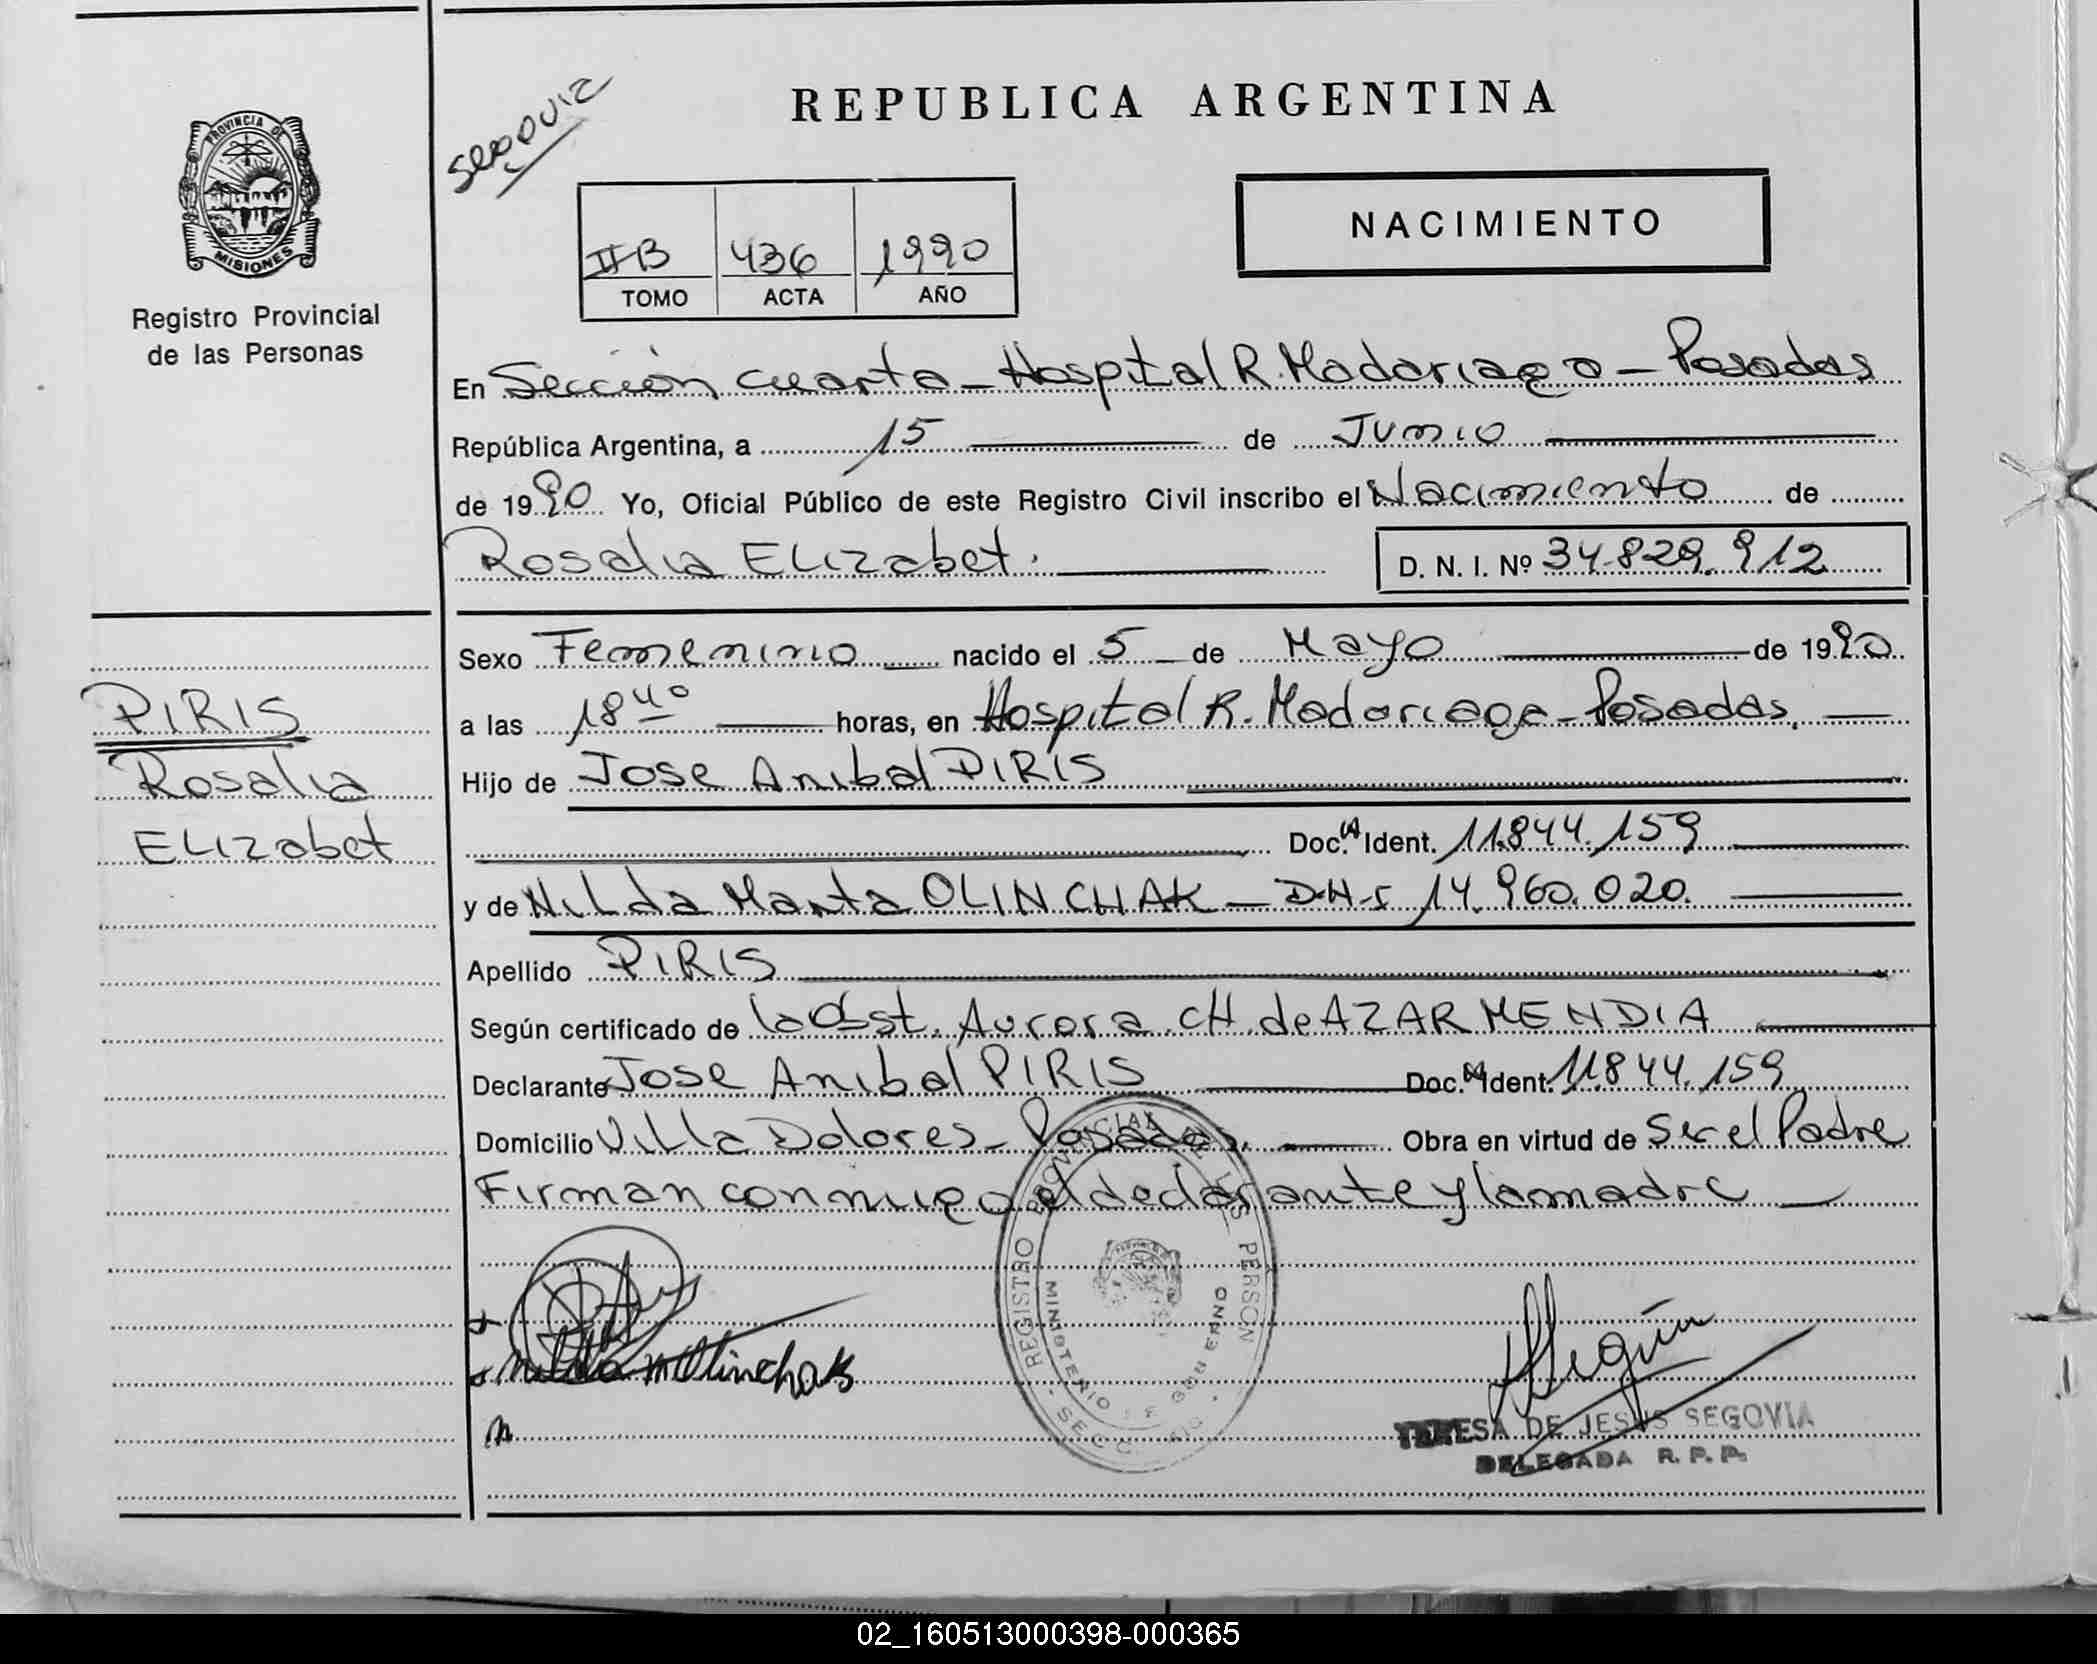 PROVINCIA DE
MISIONES
Registro Provincial
de las Personas
PIRIS
Rosalia
ELIzabet
REPUBLICA ARGENTINA
NACIMIENTO
IIB 436 1990
TOMO ACTA AÑO
En Sección cuarta - Hospital R. Madariaga - Posadas
República Argentina, a 15 de Junio
de 1990 Yo, Oficial Público de este Registro Civil inscribo el Nacimiento de
Rosalia ELIzabet. D. N. I. Nº 34.829.912
Sexo Femenino nacido el 5 de Mayo de 1990
a las 18 40 horas, en Hospital R. Madariaga - Posadas.
Hijo de Jose Anibal PIRIS
Doc. Ident. 11.844.159
y de Nilda Marta OLINCHAK - D.N.I 14.960.020.
Apellido PIRIS
Según certificado de la Obst. Aurora CH. de AZARMENDIA
Declarante Jose Anibal PIRIS Doc. Ident. 11.844.159
Domicilio Villa Dolores - Posadas. Obra en virtud de Ser el Padre
Firman conmigo el declarante y la madre
REGISTRO PROVINCIAL DE LAS PERSON
MINISTERIO DE GOBIERNO
Nilda M Olinchak
TERESA DE JESUS SEGOVIA
DELEGADA R. P. P.
02_160513000398-000365